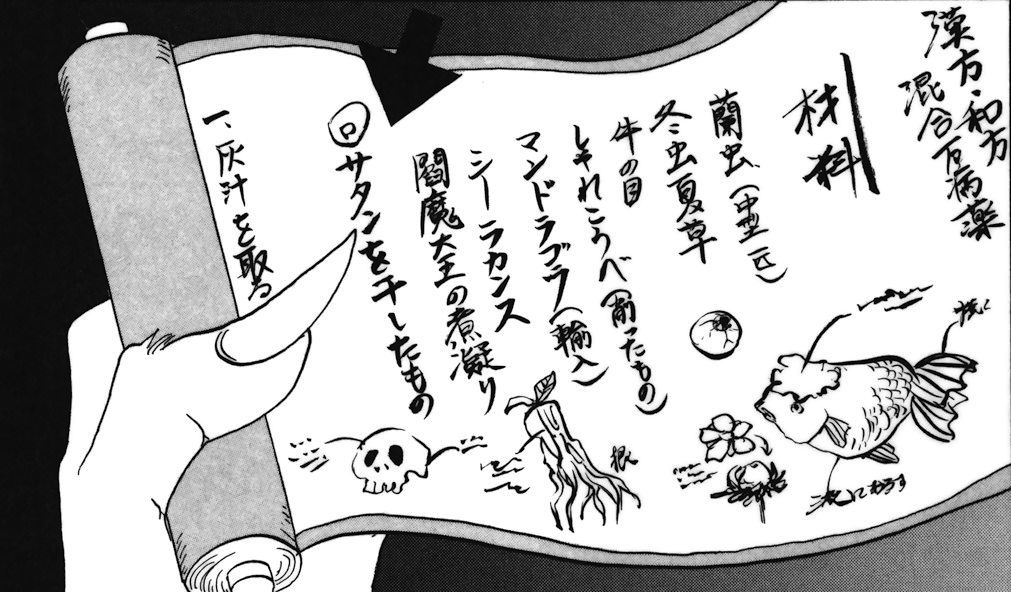 漢方・和方
混合百病薬
材料
蘭虫(中型一匹)
冬虫夏草
牛の目
しゃれこうべ(削ったもの)
マンドラゴラ(輸入)
シーラカンス
閻魔大王の煮凝り
回サタンを干したもの
一、灰汁を取る
焼く
根